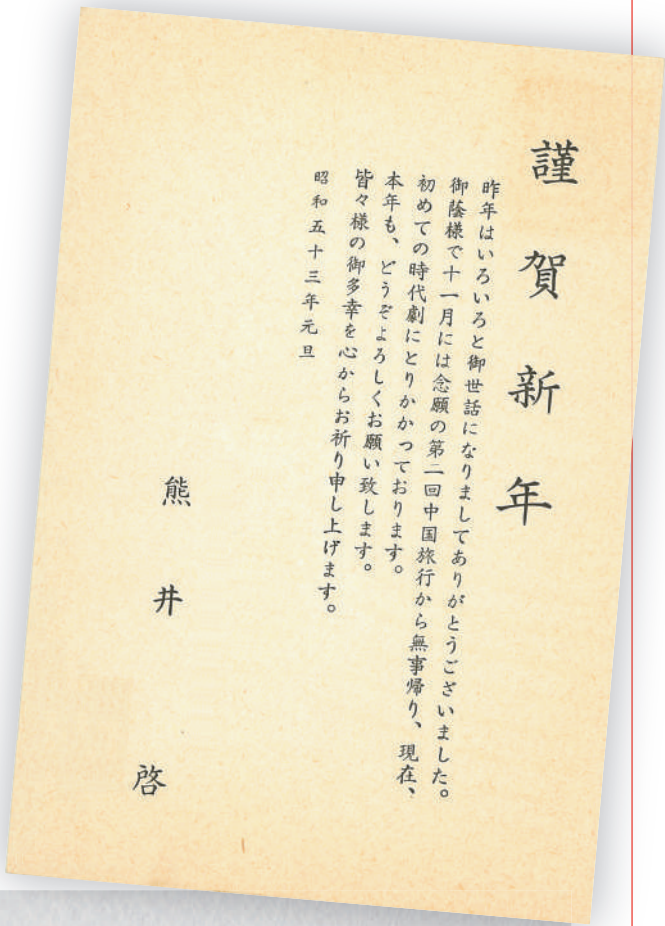 謹賀新年
昨年はいろいろと御世話になりましてありがとうございました。
御蔭様で十一月には念願の第二回中国旅行から無事帰り、現在、
初めての時代劇にとりかかっております。
本年も、どうぞよろしくお願い致します。
皆々様の御多幸を心からお祈り申し上げます。
昭和五十三年元旦
熊井啓